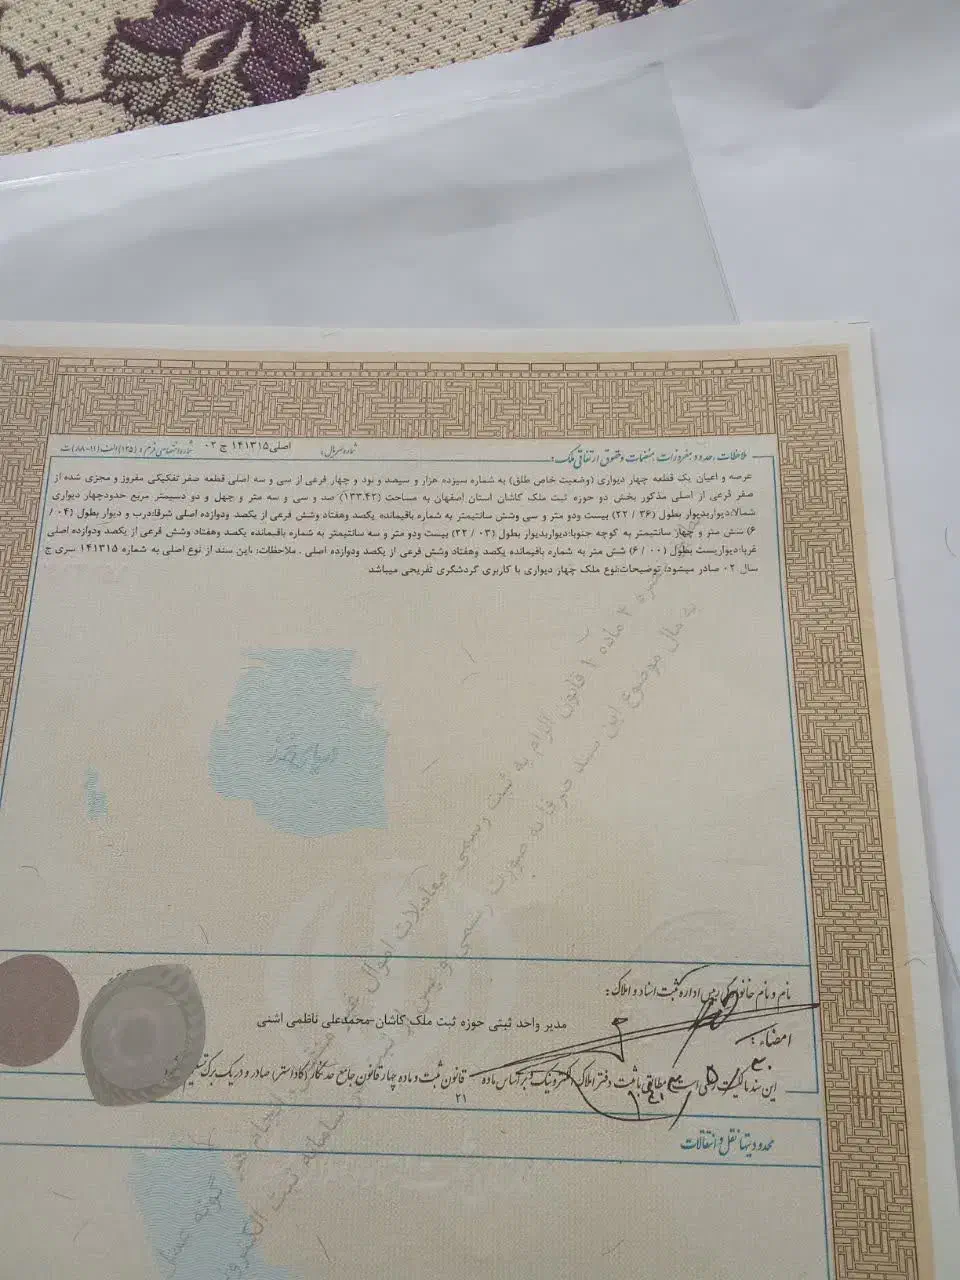 ملاحظات، حدود، مفروزات، منضمات و حقوق ارتفاقی ملک:
شماره سریال: اصلی ۱۴۱۳۱۵ ج ۰۲
عرصه و اعیان یک قطعه چهار دیواری (وضعیت خاص طلق) به شماره سیزده هزار و سیصد و نود و چهار فرعی از سی و سه اصلی قطعه صفر تفکیکی مفروز و مجزی شده از
صفر فرعی از اصلی مذکور بخش دو حوزه ثبت ملک کاشان استان اصفهان به مساحت (۱۳۳.۴۲) صد و سی و سه متر و چهل و دو دسیمتر مربع حدودچهار دیواری
شمالا:دیواربدیوار بطول (۳۶ / ۲۲) بیست ودو متر و سی وشش سانتیمتر به شماره باقیمانده یکصد وهفتاد وشش فرعی از یکصد ودوازده اصلی شرقا:درب و دیوار بطول (۰۴ /
۶) شش متر و چهار سانتیمتر به کوچه جنوبا:دیواربدیوار بطول (۰۳ / ۲۲) بیست ودو متر و سه سانتیمتر به شماره باقیمانده یکصد وهفتاد وشش فرعی از یکصد ودوازده اصلی
غربا:دیواریست بطول (۰۰ / ۶) شش متر به شماره باقیمانده یکصد وهفتاد وشش فرعی از یکصد ودوازده اصلی . ملاحظات:،این سند از نوع اصلی به شماره ۱۴۱۳۱۵ سری ج
سال ۰۲ صادر میشود، توضیحات:نوع ملک چهار دیواری با کاربری گردشگری تفریحی میباشد
ماده ۱ قانون الزام به ثبت رسمی معاملات اموال
به مال موضوع این سند صرفا به صورت رسمی و
نام و نام خانوادگی رییس اداره ثبت اسناد و املاک:
مدیر واحد ثبتی حوزه ثبت ملک کاشان-محمدعلی ناظمی اشنی
امضاء:
این سند مالکیت مطابق با ثبت دفتر املاک الکترونیک و بر اساس ماده ۲۱ قانون ثبت و ماده چهار قانون جامع حدنگار (کاداستر) صادر و در یک برگ
محدودیتها نقل و انتقالات